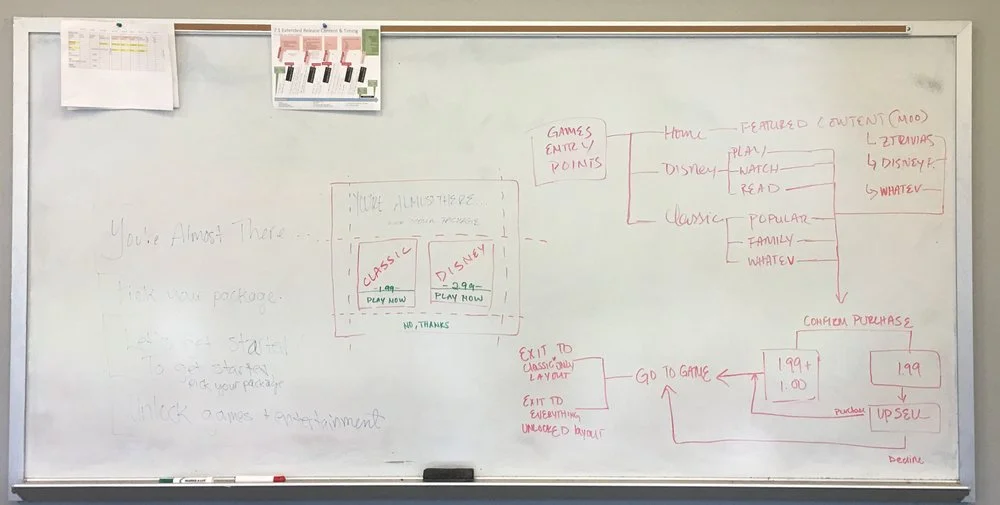 7.1 Extended Release Content & Timing
You're Almost There...
Pick your package.
Let's get started
To get started,
pick your package
Unlock games + entertainment
YOU'RE ALMOST THERE...
YOUR PACKAGE
CLASSIC
-1.99-
PLAY NOW
DISNEY
-2.99-
PLAY NOW
NO, THANKS
GAMES
ENTRY
POINTS
Home
FEATURED CONTENT (MOD)
ZTRIVIAS
DISNEY F.
WHATEV
DISNEY
PLAY
WATCH
READ
Classic
POPULAR
FAMILY
WHATEV
CONFIRM PURCHASE
1.99 +
1.00
1.99
UPSELL
Purchase
Decline
GO TO GAME
EXIT TO
CLASSIC ONLY
LAYOUT
EXIT TO
EVERYTHING
UNLOCKED LAYOUT